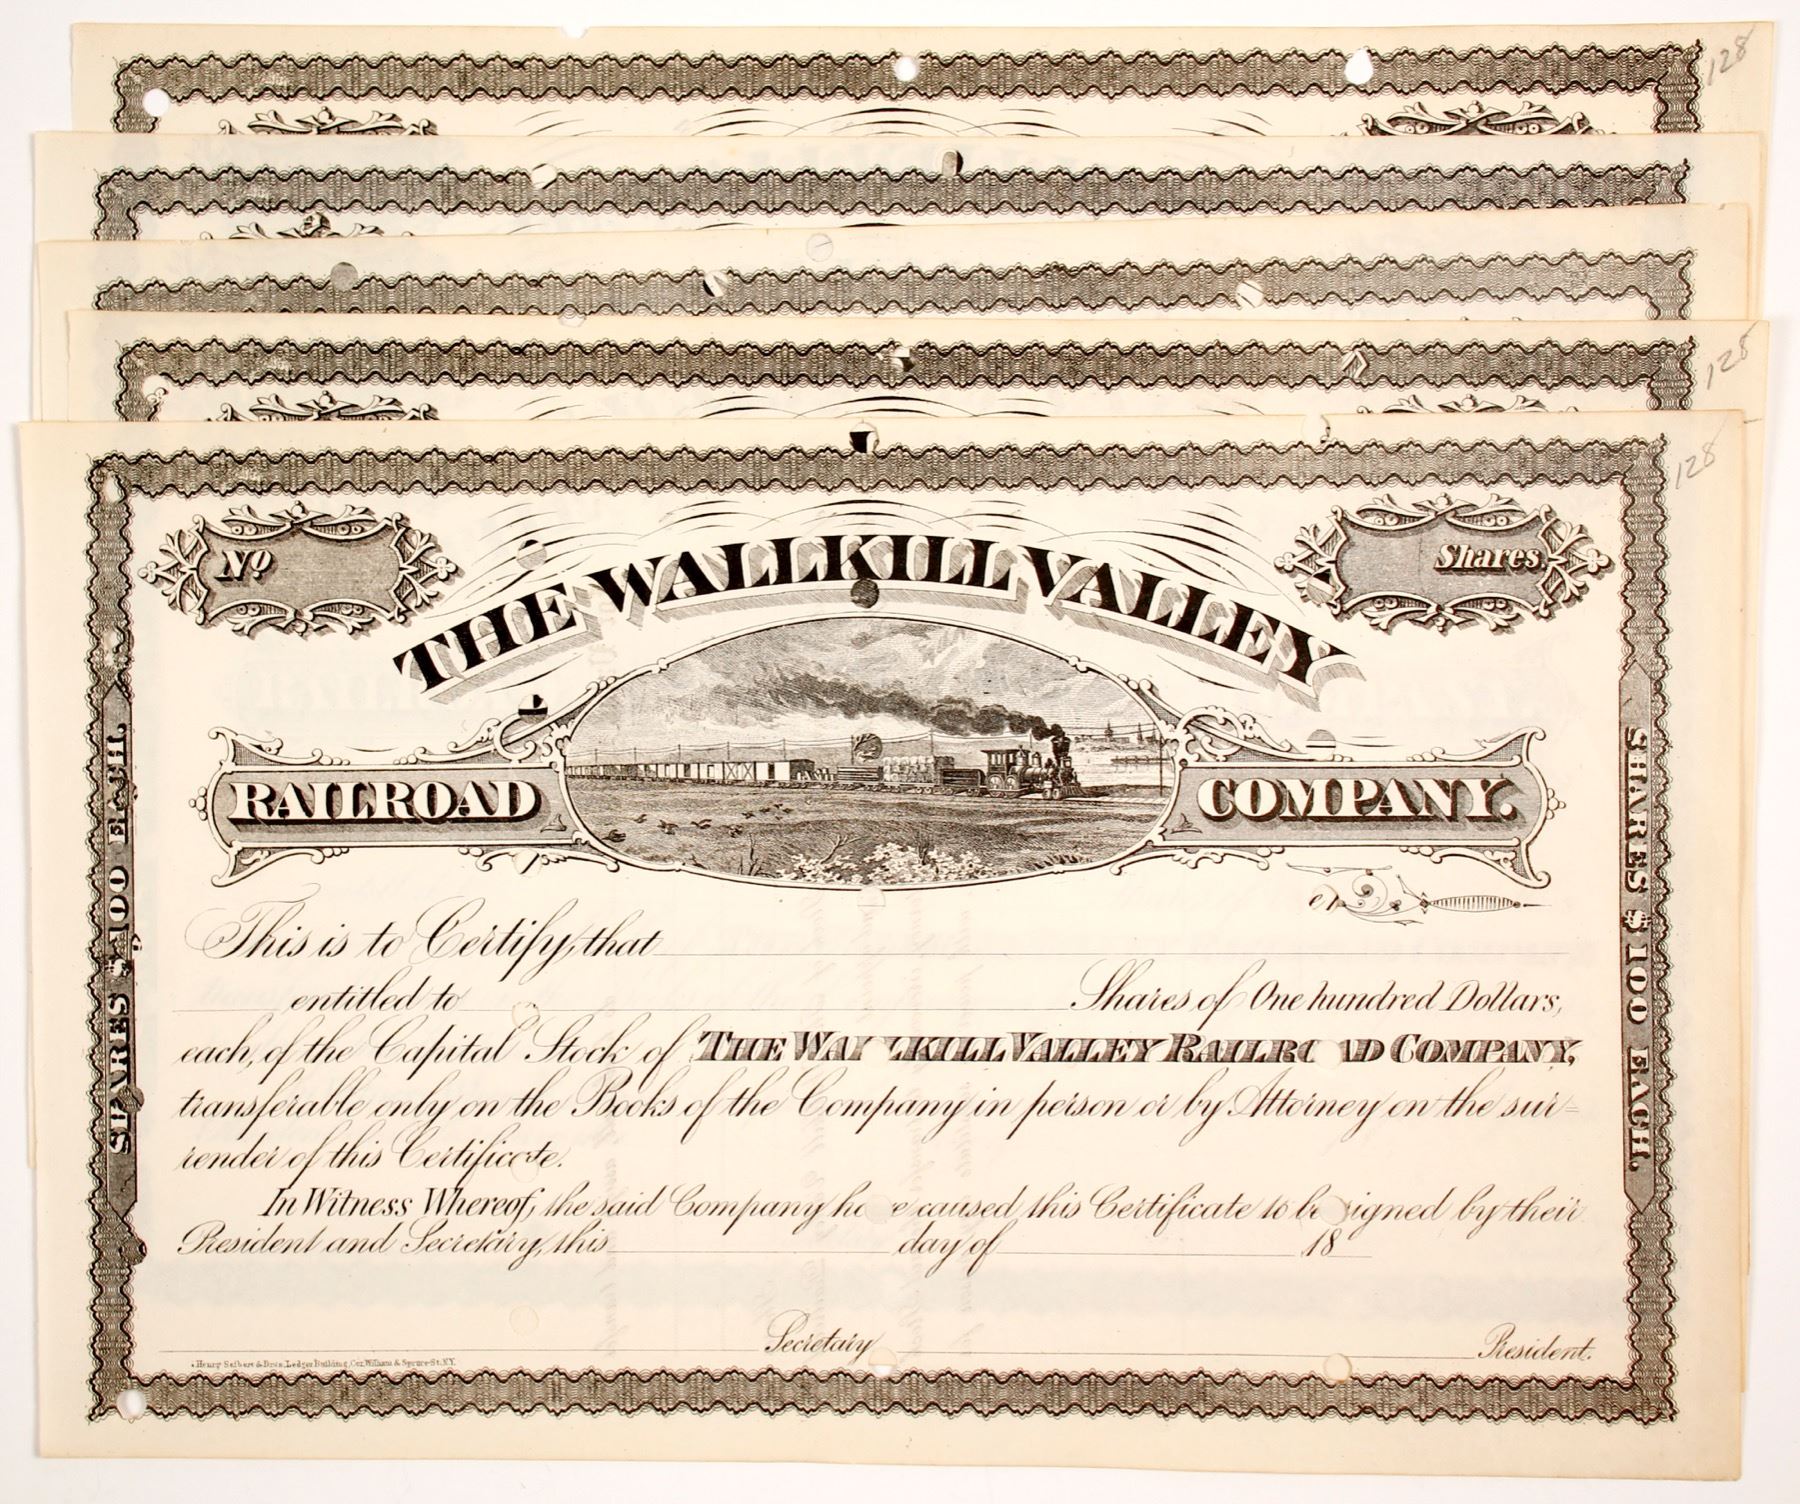 128
128
128
No
Shares.
THE WALLKILL VALLEY
RAILROAD
COMPANY.
SHARES $100 EACH.
SHARES $100 EACH.
This is to Certify, that
entitled to Shares of One hundred Dollars,
each, of the Capital Stock of THE WALLKILL VALLEY RAILROAD COMPANY,
transferable only on the Books of the Company in person or by Attorney on the sur=
render of this Certificate.
In Witness Whereof, the said Company have caused this Certificate to be signed by their
President and Secretary, this day of 18
Secretary
President.
Henry Seibert & Bros. Ledger Building, Cor. William & Spruce St. N.Y.